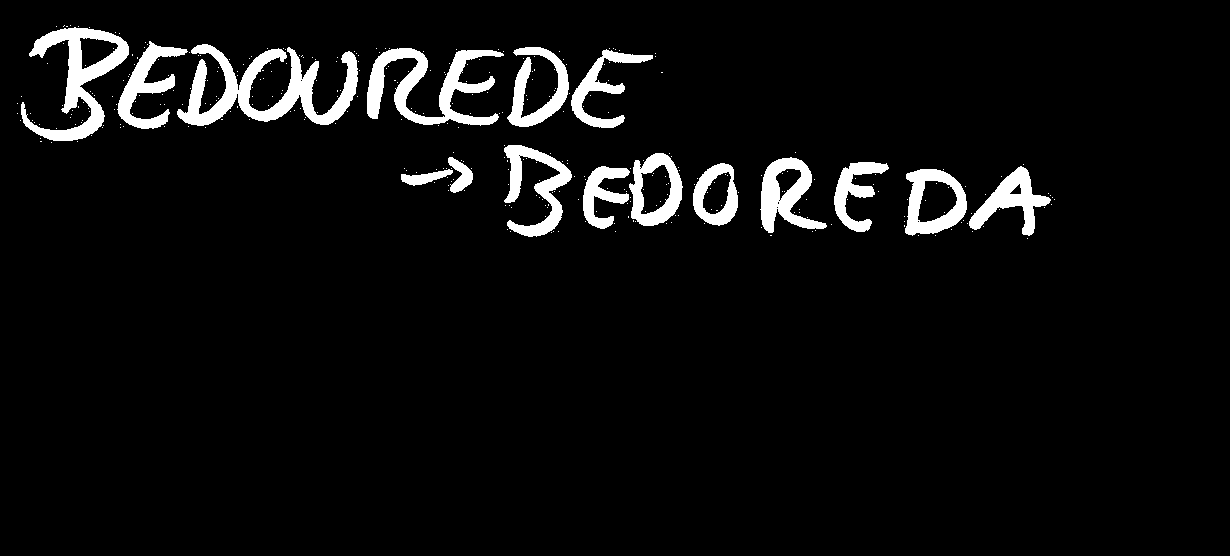 BEDOUREDE
→ BEDOREDA